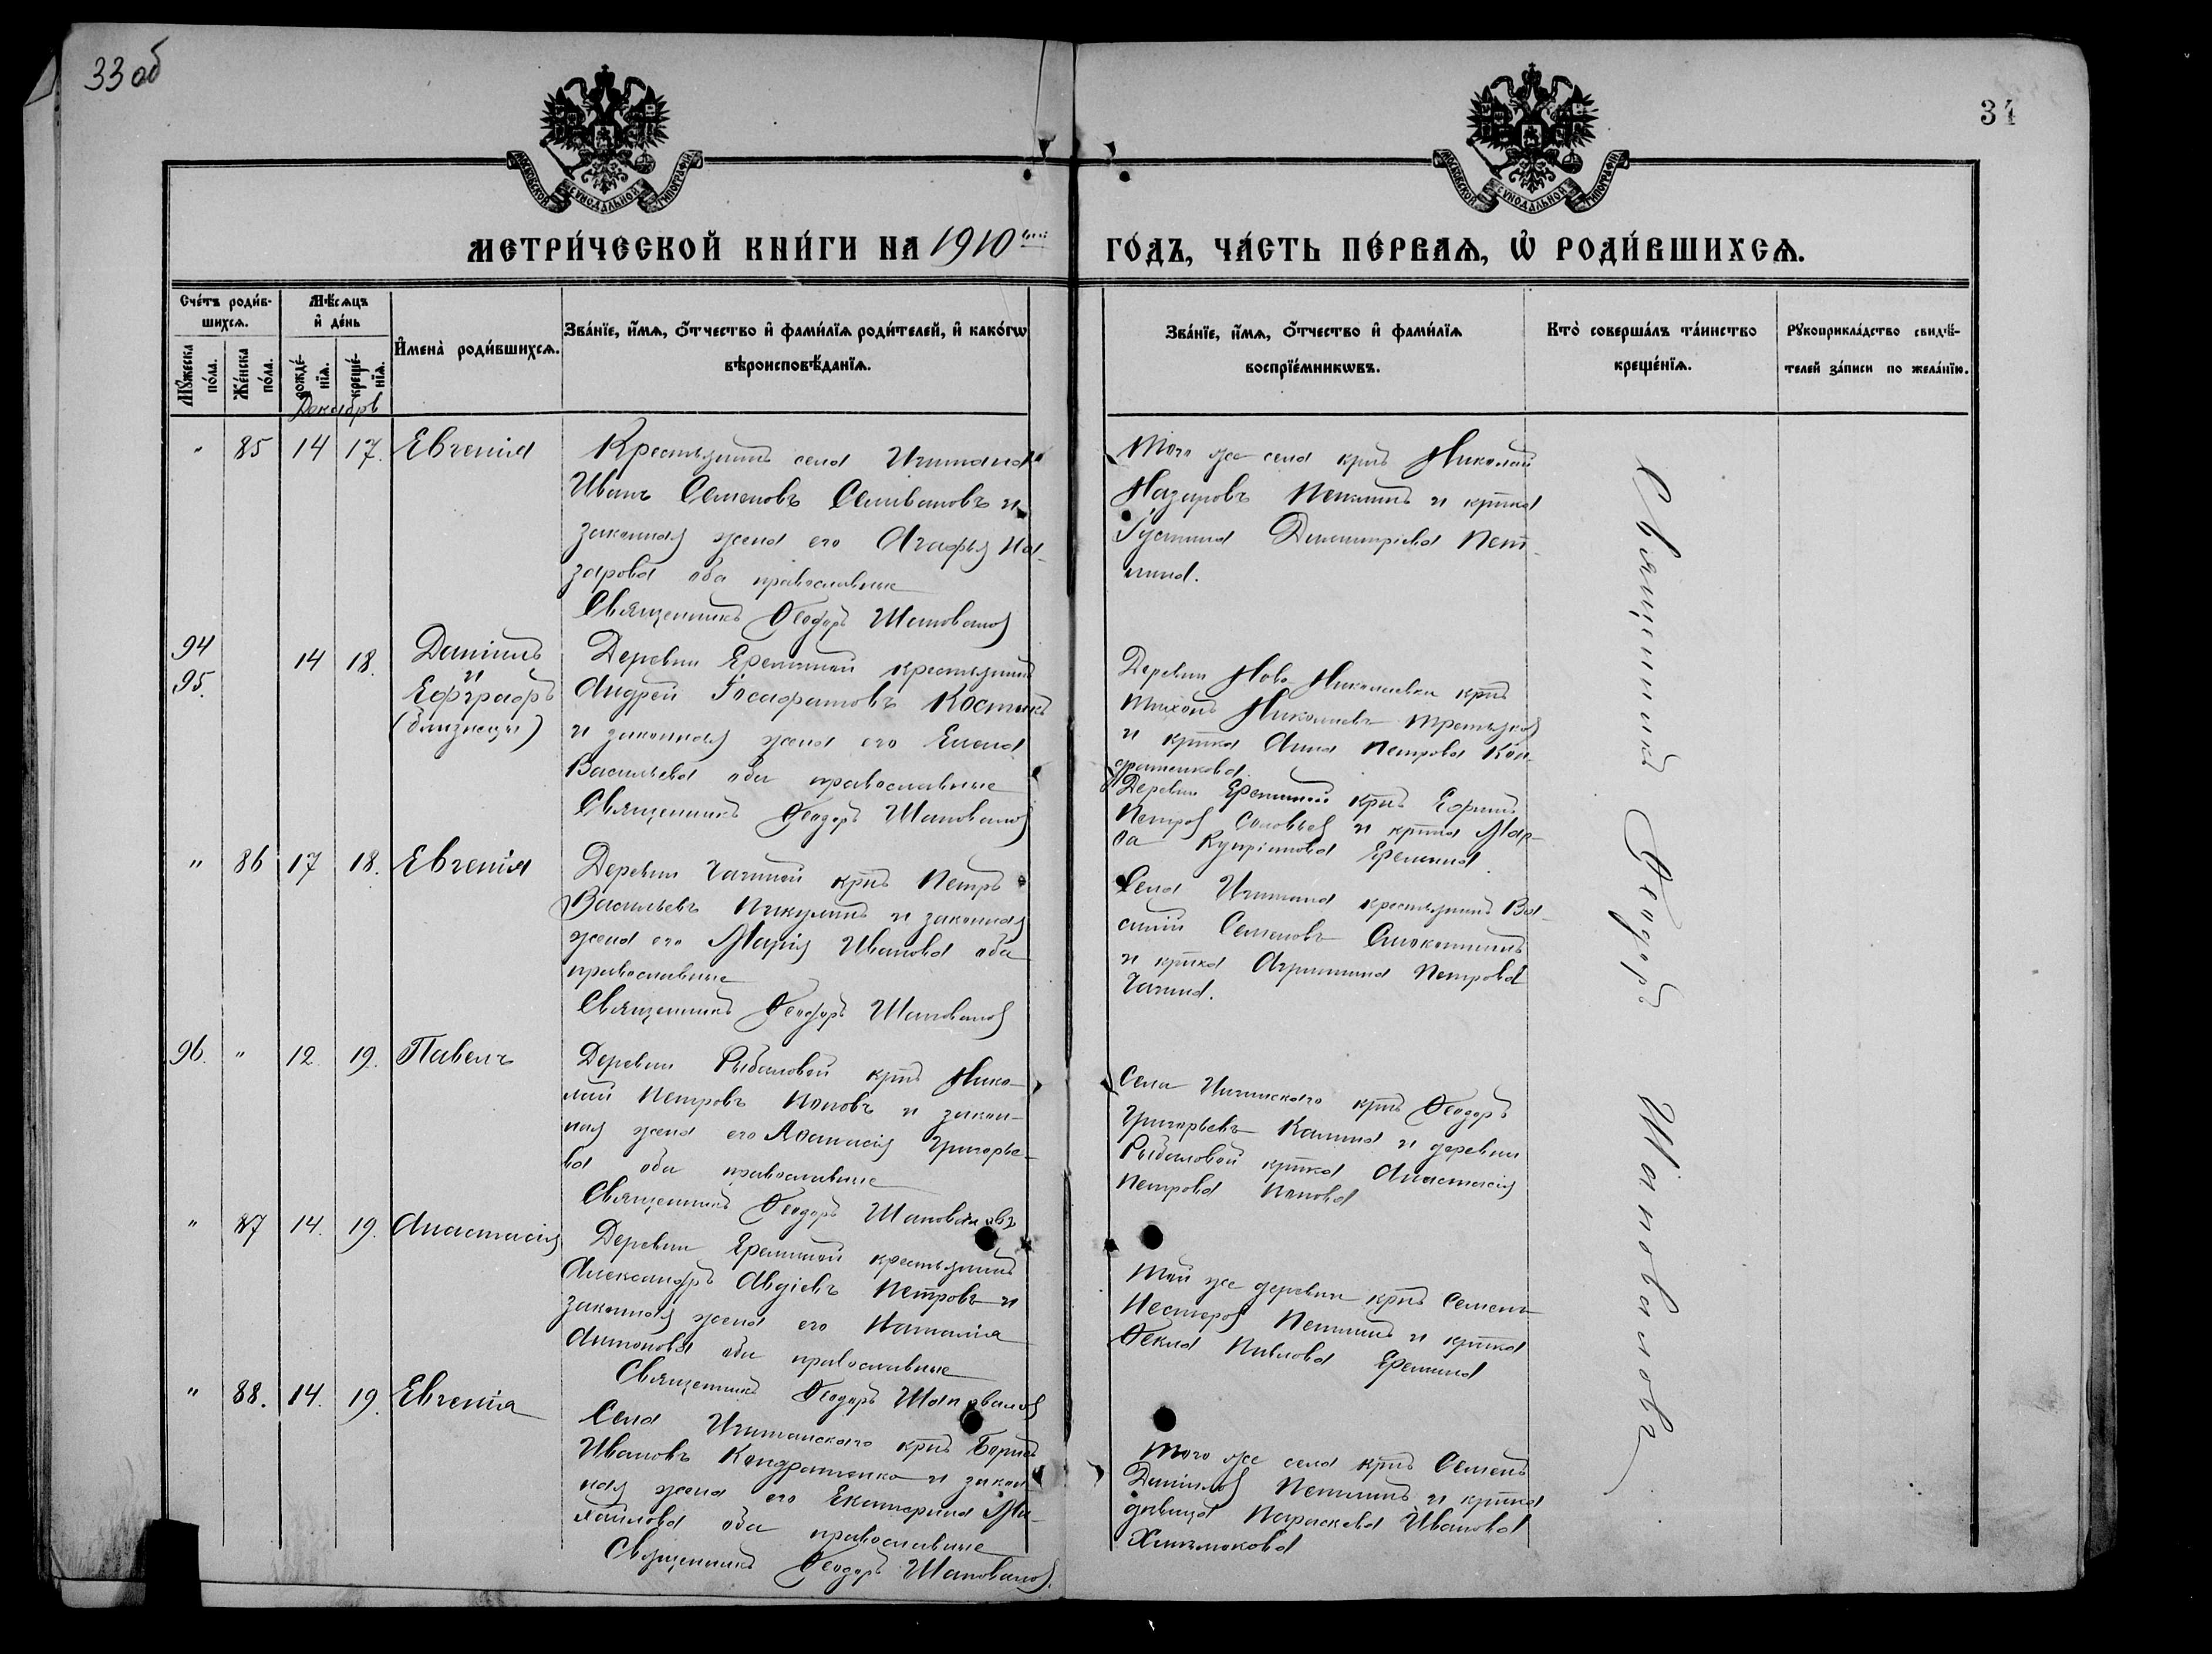 33 об
34
МОСКОВСКОЙ СѴНОДАЛЬНОЙ ТИПОГРАФІИ
МОСКОВСКОЙ СѴНОДАЛЬНОЙ ТИПОГРАФІИ
МЕТРИ́ЧЕСКОЙ КНИ́ГИ НА 1910 ГО́ДЪ, ЧА́СТЬ ПЕ́РВАѦ, Ѡ҆ РОДИ́ВШИХСѦ.
Сче́тъ роди́в-
шихсѧ.
Мꙋ́жеска по́ла.
Же́нска по́ла.
Мѣ́сѧцъ
и҆ де́нь
рожде́-
нїѧ.
креще́-
нїѧ.
И҆мена̀ роди́вшихсѧ.
Зва́нїе, и҆́мѧ, ѻ҆́тчество и҆ фами́лїѧ роди́телей, и҆ како́гѡ
вѣроисповѣ́данїѧ.
Зва́нїе, и҆́мѧ, ѻ҆́тчество и҆ фами́лїѧ
воспрїе́мникѡвъ.
Кто̀ соверша́лъ та́инство
креще́нїѧ.
Рꙋкоприкла́дство свидѣ́-
телей за́писи по жела́нїю.
Декабрь
" 85 14 17. Евгенія
Крестьянинъ села
Иванъ Семеновъ Селивановъ и
законная жена его Агафья На-
зарова оба православные
Священникъ Ѳеодоръ Шаповаловъ
Того же села кр-нъ Николай
Назаровъ и кр-нка
Іустина Димитріева
94
95. 14 18. Даніилъ
и
Евграфъ
(близнецы)
Деревни Ереминой крестьянинъ
Андрей Іосафатовъ
и законная жена его Елена
Васильева оба православные
Священникъ Ѳеодоръ Шаповаловъ
Деревни Ново-Николаевки кр-нъ
Тихонъ Николаевъ Третьяковъ
и кр-нка Анна Петрова Кон-
дратенкова.
Деревни Ереминой кр-нъ Ефимъ
Петровъ Соловьевъ и кр-нка Мар-
ѳа Купріянова Еремина.
" 86 17 18. Евгенія
Деревни Чагиной кр-нъ Петръ
Васильевъ Пикулинъ и законная
жена его Марія Иванова оба
православные
Священникъ Ѳеодоръ Шаповаловъ
Села крестьянинъ Ва-
силій Семеновъ
и кр-нка Агриппина Петрова
Чагина.
96. " 12 19. Павелъ
Деревни Рыбаловой кр-нъ Нико-
лай Петровъ Поповъ и закон-
ная жена его Аѳанасія Григорье-
ва оба православные
Священникъ Ѳеодоръ Шаповаловъ
Села кр-нъ Ѳеодоръ
Григорьевъ и деревни
Рыбаловой кр-нка Анастасія
Петрова Попова
" 87 14. 19. Анастасія
Деревни Ереминой крестьянинъ
Александръ Авдіевъ Петровъ и
законная жена его Наталія
Антонова оба православные
Священникъ Ѳеодоръ Шаповаловъ
Той же деревни кр-нъ Семенъ
Нестеровъ и кр-нка
Ѳекла Павлова Еремина
" 88. 14. 19. Евгенія
Села кр-нъ Борисъ
Ивановъ Кондратенко и закон
ная жена его Екатерина Ми-
хаилова оба православные
Священникъ Ѳеодоръ Шаповаловъ.
Того же села кр-нъ Семенъ
Даніиловъ и кр-нка
дѣвица Параскева Иванова
Священникъ Ѳеодоръ Шаповаловъ